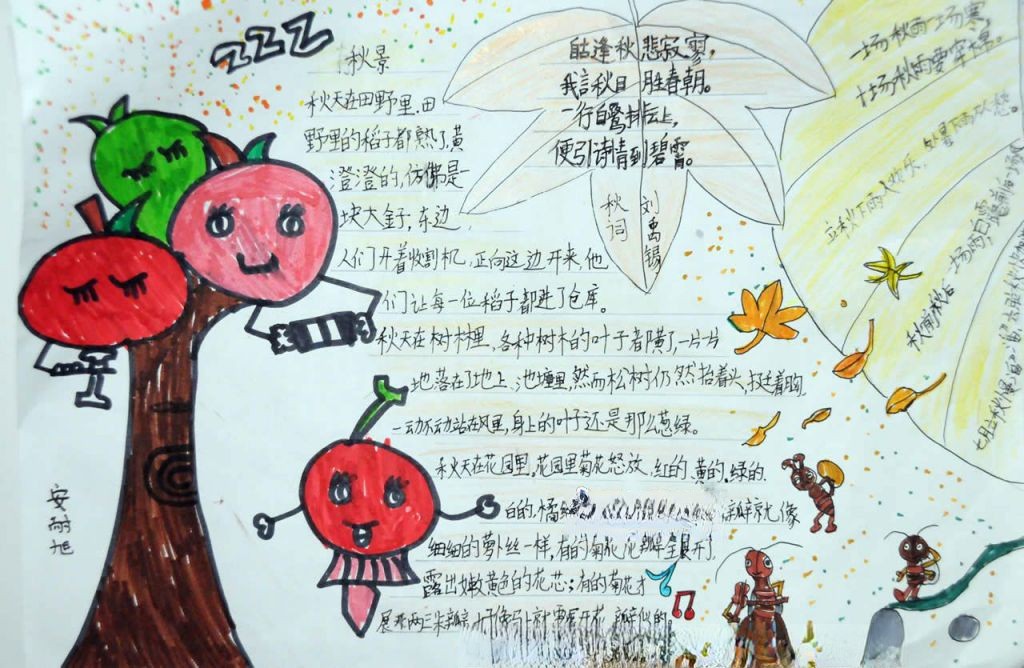 zzz
秋景
秋天在田野里.田
野里的稻子都熟了,黄
澄澄的,仿佛是一
块大金子;东边,
人们开着收割机,正向这边开来,他
们让每一位稻子都进了仓库。
秋天在树林里,各种树木的叶子都黄了,一片片
地落在了地上、池塘里,然而松树仍然抬着头,挺着胸,
一动不动站在风里,身上的叶子还是那么葱绿。
秋天在花园里.花园里菊花怒放,红的、黄的、绿的、
白的、橘
就像
细细的萝卜丝一样,有的菊花花瓣全展开了,
露出嫩黄色的花芯;有的菊花才
展开两三朵瓣
自古逢秋悲寂寥,
我言秋日胜春朝。
一行白鹭排云上,
便引诗情到碧霄。
秋词
刘禹锡
一场秋雨一场寒,
十场秋雨要穿棉。
立秋下雨人欢乐,处暑下雨万人愁。
秋前秋后一场雨,白露前后一场风
安耐旭